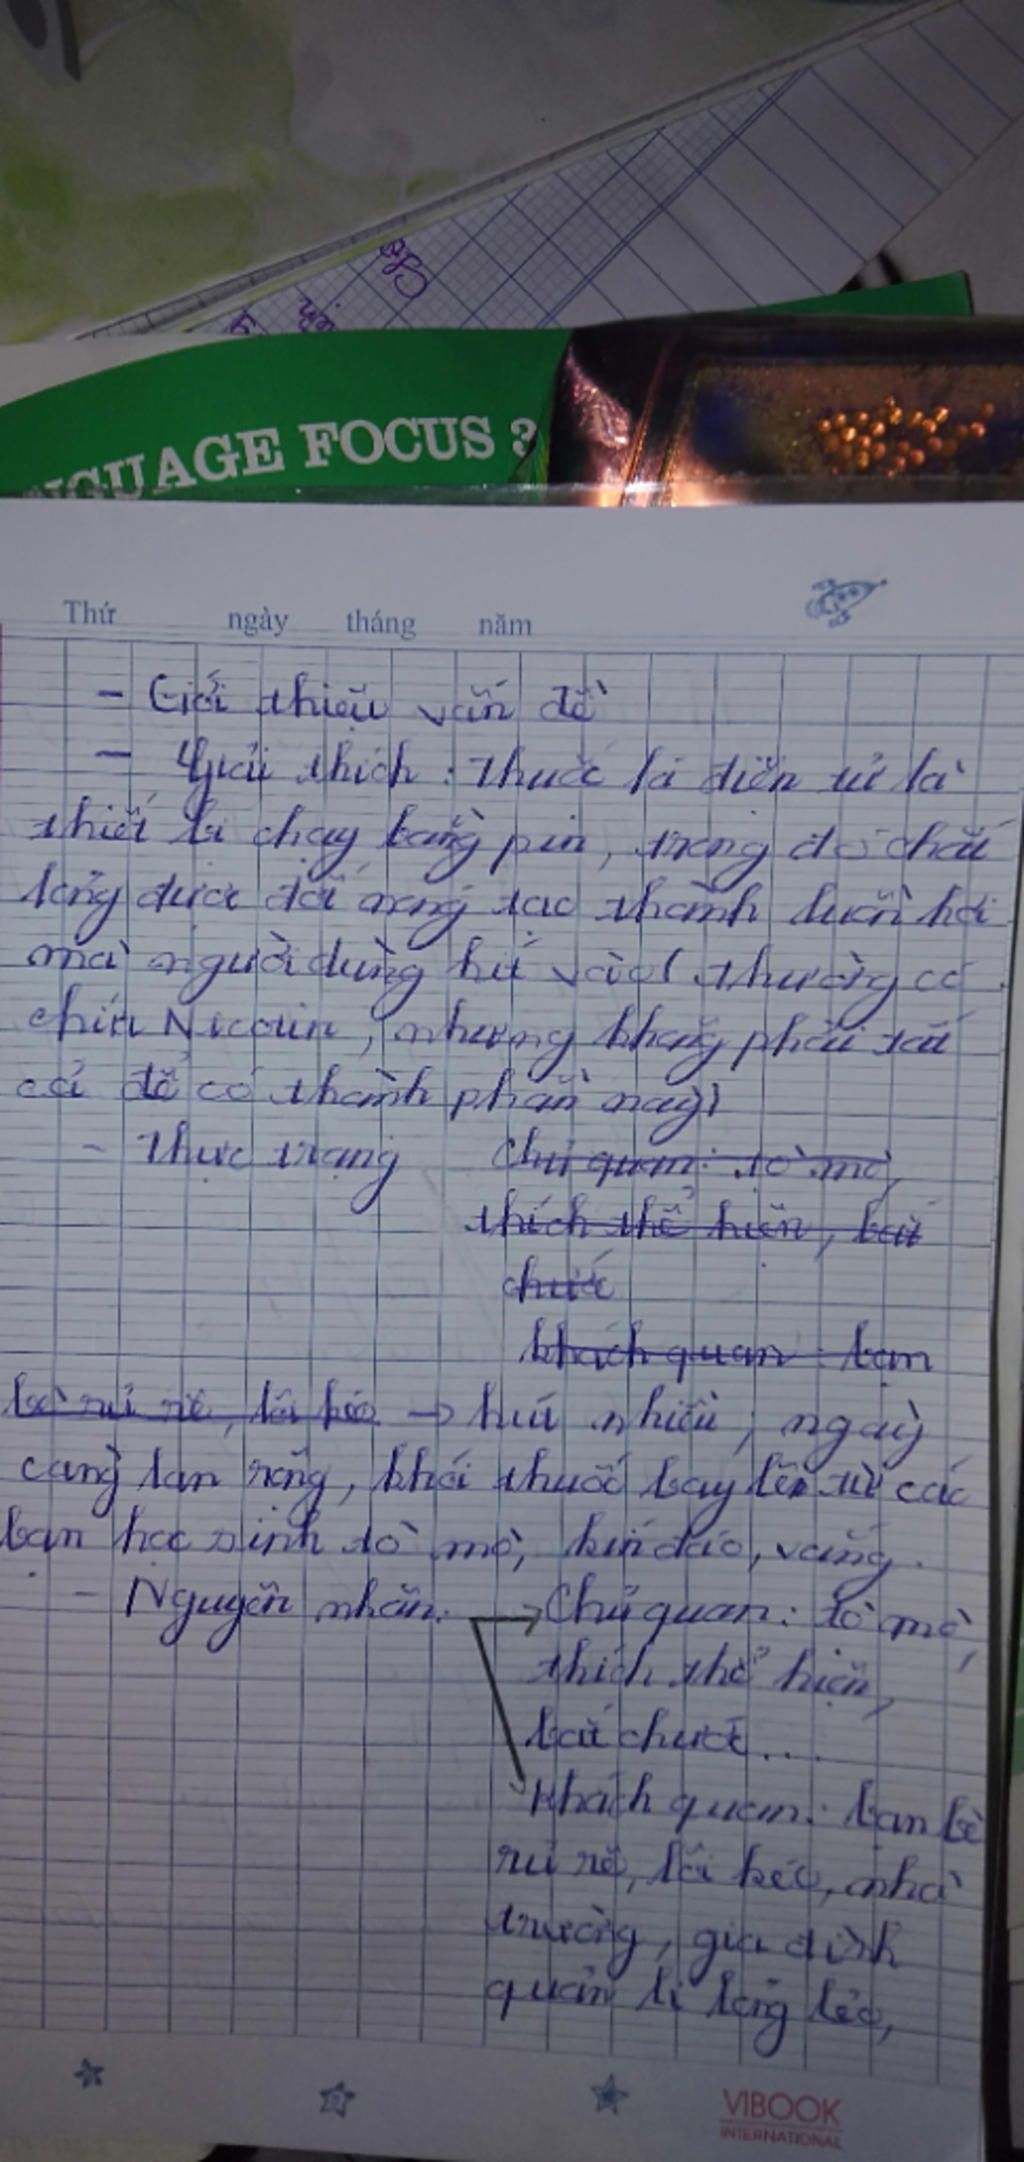 Cho
NGUAGE FOCUS 3
Thứ ngày tháng năm
- Giới thiệu vấn đề
- Giải thích: Thuốc lá điện tử là
thiết bị chạy bằng pin, trong đó chất
lỏng được đốt nóng tạo thành luồn hơi
mà người dùng hít vào (thường có
chứa Nicotin, nhưng không phải tất
cả để có thành phần này)
- Thực trạng Chủ quan: tò mò,
thích thể hiện, bắt
chước
khách quan: bạn
bè rủ rê, lôi kéo → hút nhiều, ngày
càng lan rộng, khói thuốc bay lên từ các
bạn học sinh tò mò, kín đáo, vắng.
- Nguyên nhân: → Chủ quan: tò mò,
thích thể hiện,
bắt chước...
Khách quan: bạn bè
rủ rê, lôi kéo, nhà
trường, gia đình
quản lí lỏng lẻo,
VIBOOK
INTERNATIONAL